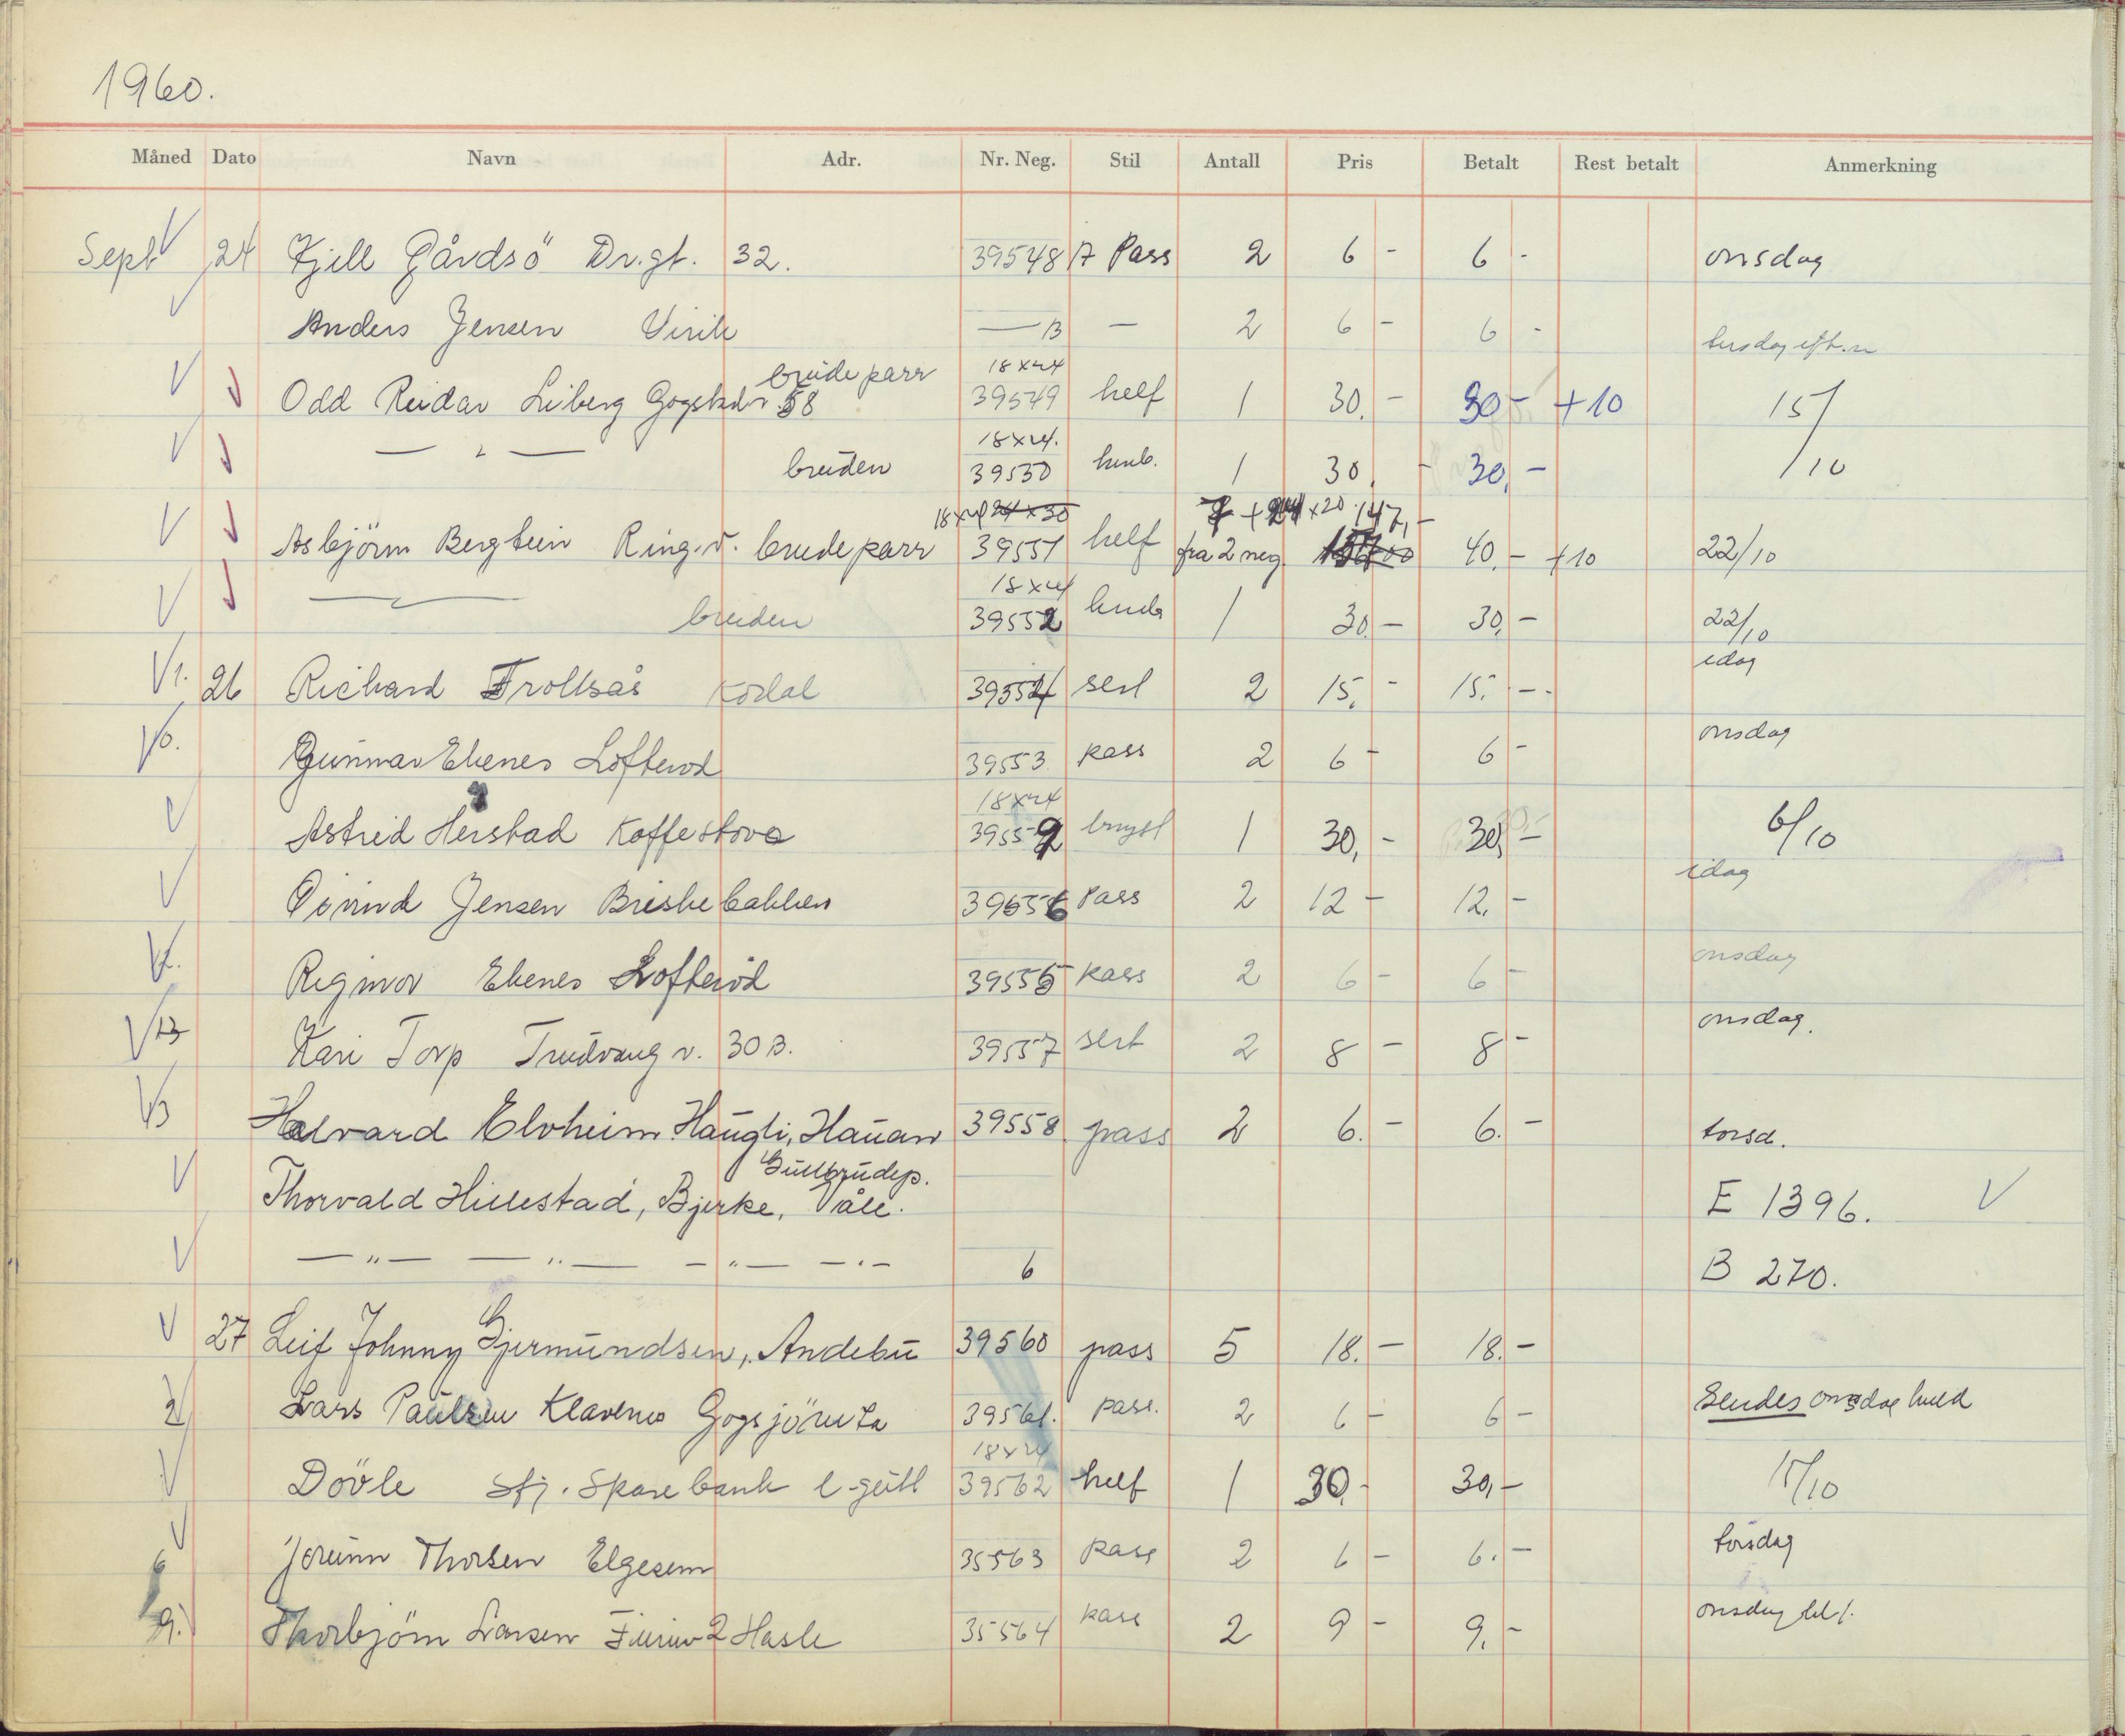 1960.
Måned Dato Navn Adr. Nr. Neg. Stil Antall Pris Betalt Rest betalt Anmerkning
Sept 24 Kjell Gårdsö Dr.gt. 32. 39548 A Pass 2 6 - 6 - onsdag
Anders Jensen Virik — B — 2 6 - 6 - tirsdag eft.m
brudeparr 18x24
Odd Reidar Liberg 58 39549 helf 1 30,- 30- +10 15/10
— " — bruden 18x24. 39550 1 30,- 30,-
18x24 24x30 x20 147,-
Asbjörn Bergtein Ring.v. brudeparr 39551 helf fra 2 neg. 40,- +10 22/10
bruden 18x24 39552 1 30,- 30,- 22/10
26 Richard Trollsås Kodal 39554 serl 2 15,- 15,- idag
Gunnar Ekenes Lofterød 39553 pass 2 6 - 6 - onsdag
18x24
Astrid Herstad Kaffestova 39559 bryst 1 30,- 30,- 6/10
Öivind Jensen Briskebakken 39556 Pass 2 12 - 12,- idag
Rigmor Ekenes Lofteröd 39555 pass 2 6 - 6 - onsdag
Kari Torp Trudvang v. 30 B. 39557 sert 2 8 - 8 - onsdag.
Halvard Elvheim Haugli, Hauan 39558 pass 2 6.- 6.- torsd.
Gullbrudep.
Thorvald Hillestad, Bjerke, Våle. E 1396.
— " — — " — — " — — " — 6 B 270.
27 Leif Johnny Gjermundsen, Andebu 39560 pass 5 18.- 18.-
Lars Paulsen Klavenes 39561. pass. 2 6 - 6 - Sendes onsdag
18x24
Dövle Sfj. Sparebank 39562 helf 1 30,- 30,- 15/10
Jorunn Thorsen Elgesem 35563 pass 2 6 - 6.- torsdag
Thorbjörn Larsen 2 Hasle 35564 pass 2 9 - 9,- onsdag